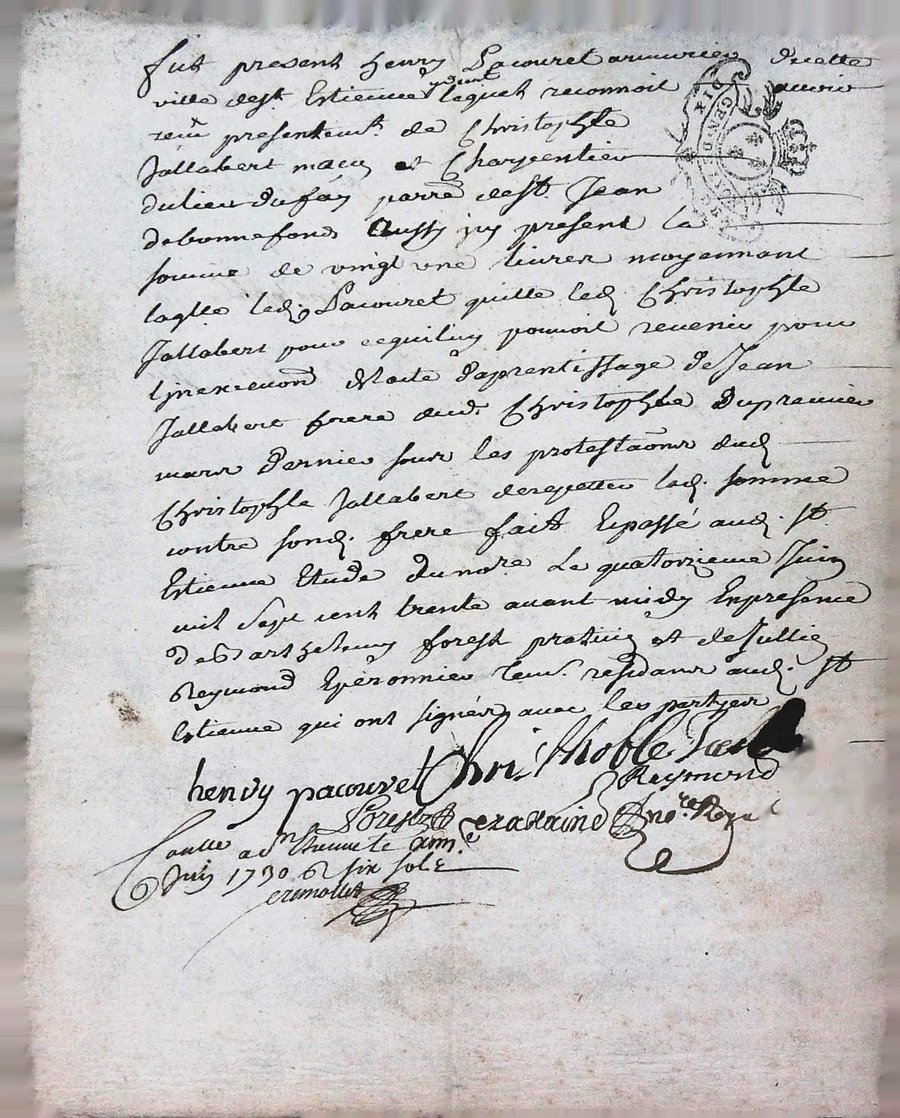 fut present henry pacouret armurier de cette
ville de st Estienne lequel reconnoit avoir
reçu presentemt de Christophle
Jallabert maçon et Charpentier
du lieu du fay parre de st. Jean
de bonnefond Aussy icy present la
somme de vingt une livres moyennant
laqlle led. pacouret quitte led. Christophle
Jallabert pour ce qui luy pouvoit revenir pour
de l'acte d'aprentissage de Jean
Jallabert frere dud. Christophle du premier
mars dernier sous les protestaons dud.
Christophle Jallabert de repetter lad. somme
contre sond. frere fait & passé aud. St
Estienne Etude du nore. Le quatorzieme Juin
mil sept cent trente avant midy En presence
de Barthelemy forest praticien et de
Reymond Eperonnier tem. residans aud. St
Estienne qui ont signés avec les partyes
henry pacouret Christhoble
Reymond
forest nore. Royal
Con a St Etienne le
Juin 1730 R six sols
DIX
GEN. DE